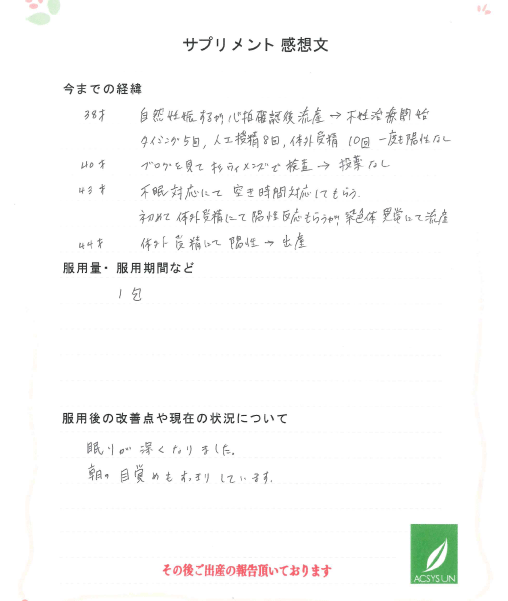 サプリメント 感想文
今までの経緯
38才 自然妊娠するが心拍確認後流産→不妊治療開始
タイミング5回, 人工授精8回, 体外受精 10回 一度も陽性なし
40才 ブログを見て 杉ウィメンズで 検査 → 投薬なし
43才 不眠対応にて 空き時間対応してもらう.
初めて 体外受精にて 陽性反応もらうが 染色体異常にて流産
44才 体外受精にて 陽性→出産
服用量・服用期間など
1包
服用後の改善点や現在の状況について
眠りが 深くなりました.
朝の目覚めもすっきりしています.
その後ご出産の報告頂いております
ACSYSUN